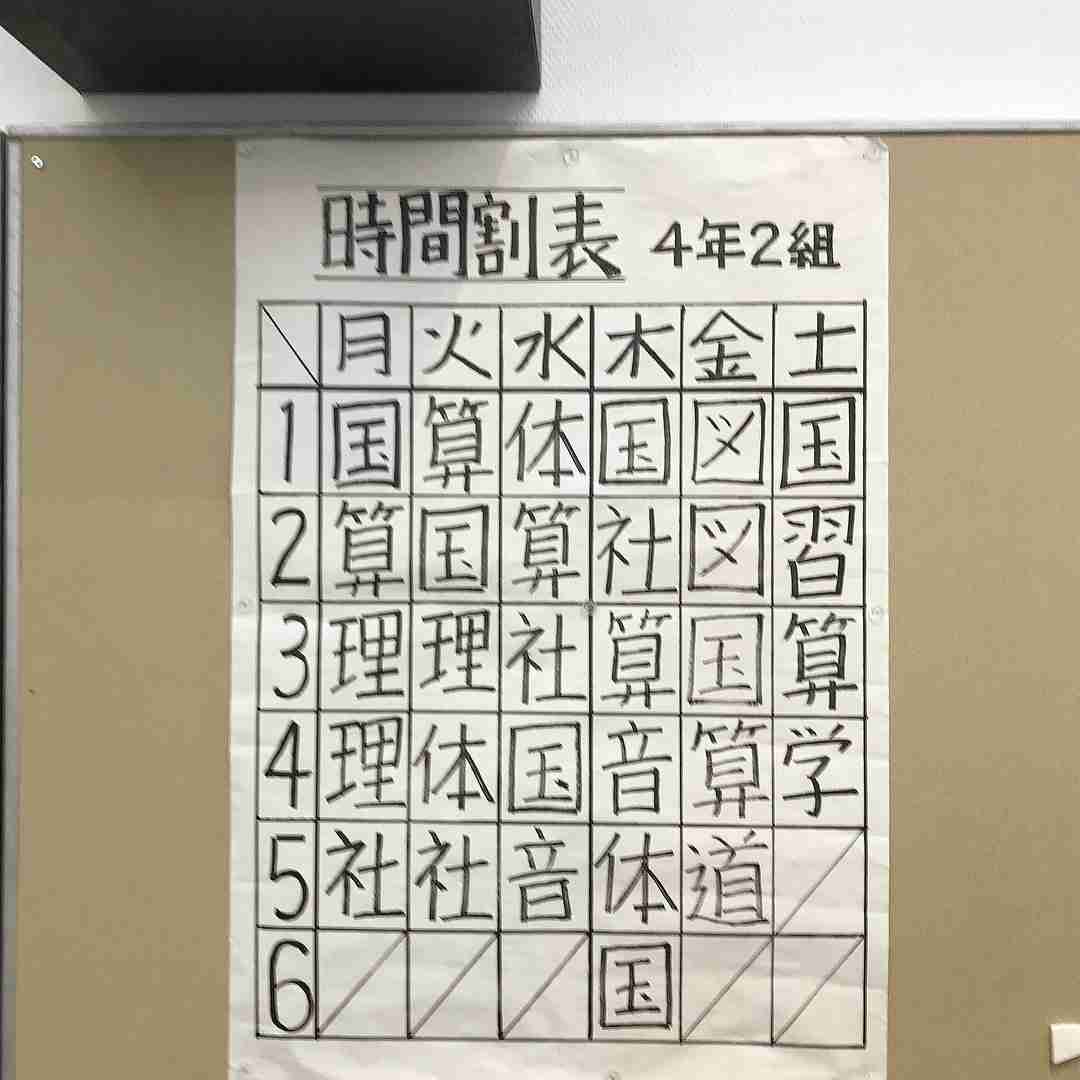 時間割表 4年2組
月 火 水 木 金 土
1 国 算 体 国 図 国
2 算 国 算 社 図 習
3 理 理 社 算 国 算
4 理 体 国 音 算 学
5 社 社 音 体 道
6 国